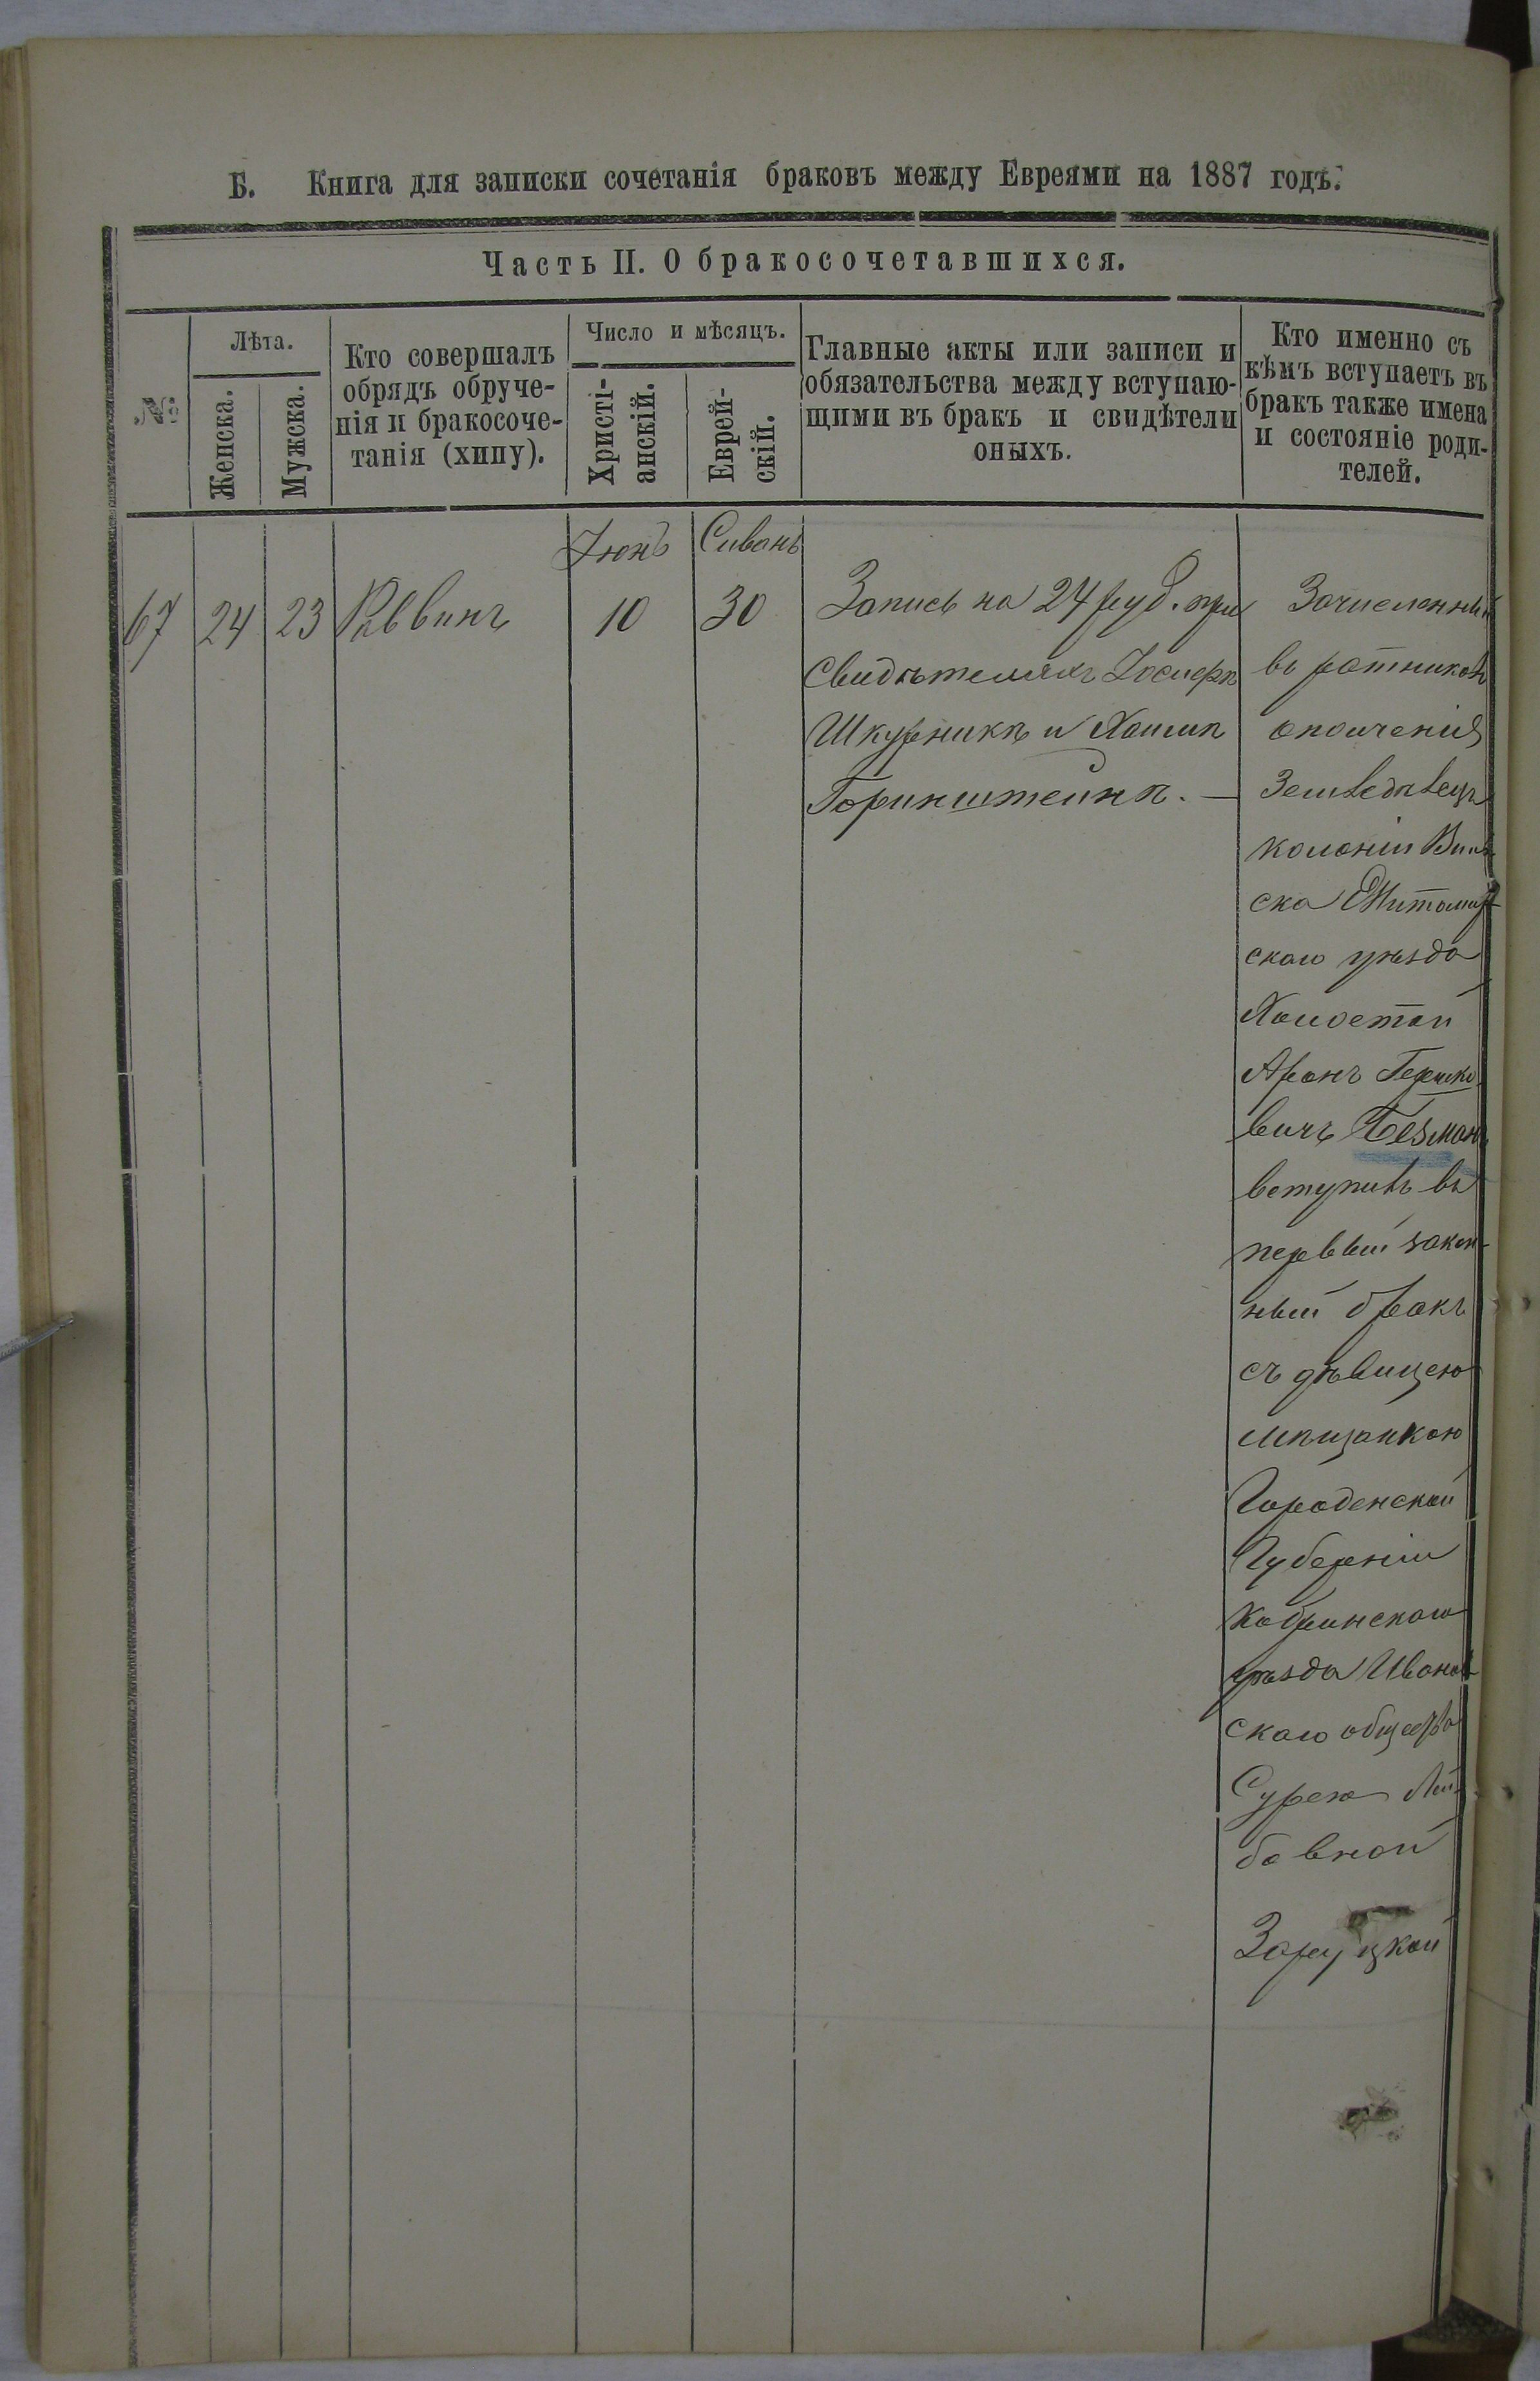 Б. Книга для записки сочетанія браковъ между Евреями на 1887 годъ.
Часть II. О бракосочетавшихся.
№
Лѣта.
Женска.
Мужска.
Кто совершалъ
обрядъ обруче-
нія и бракосоче-
танія (хипу).
Число и мѣсяцъ.
Христі-
анскій.
Еврей-
скій.
Главные акты или записи и
обязательства между вступаю-
щими въ бракъ и свидѣтели
оныхъ.
Кто именно съ
кѣмъ вступаетъ въ
бракъ также имена
и состояніе роди-
телей.
Іюнь Сиванъ
67 24 23 Раввинъ 10 30
Запись на 24 руб. при
Свидѣтеляхъ Іосифѣ
Шкурникѣ и Хаимѣ
Горинштейнѣ. —
Зачисленный
въ ратники
ополченія
Земледѣлецъ
колоніи
ска Житомир-
скаго уѣзда
Холостой
Аронъ Гершко-
вичъ Безманъ
вступилъ въ
первый закон-
ный бракъ
съ дѣвицею
мѣщанкою
Гроденской
Губерніи
Кобринскаго
уѣзда Иванов-
скаго общества
Сурею Лей-
бовной
Заруцкой